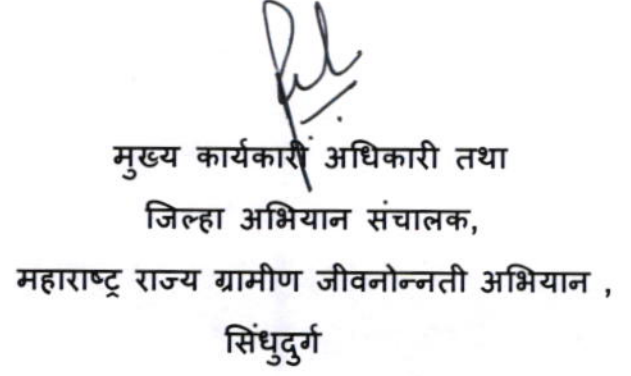 मुख्य कार्यकारी अधिकारी तथा
जिल्हा अभियान संचालक,
महाराष्ट्र राज्य ग्रामीण जीवनोन्नती अभियान ,
सिंधुदुर्ग